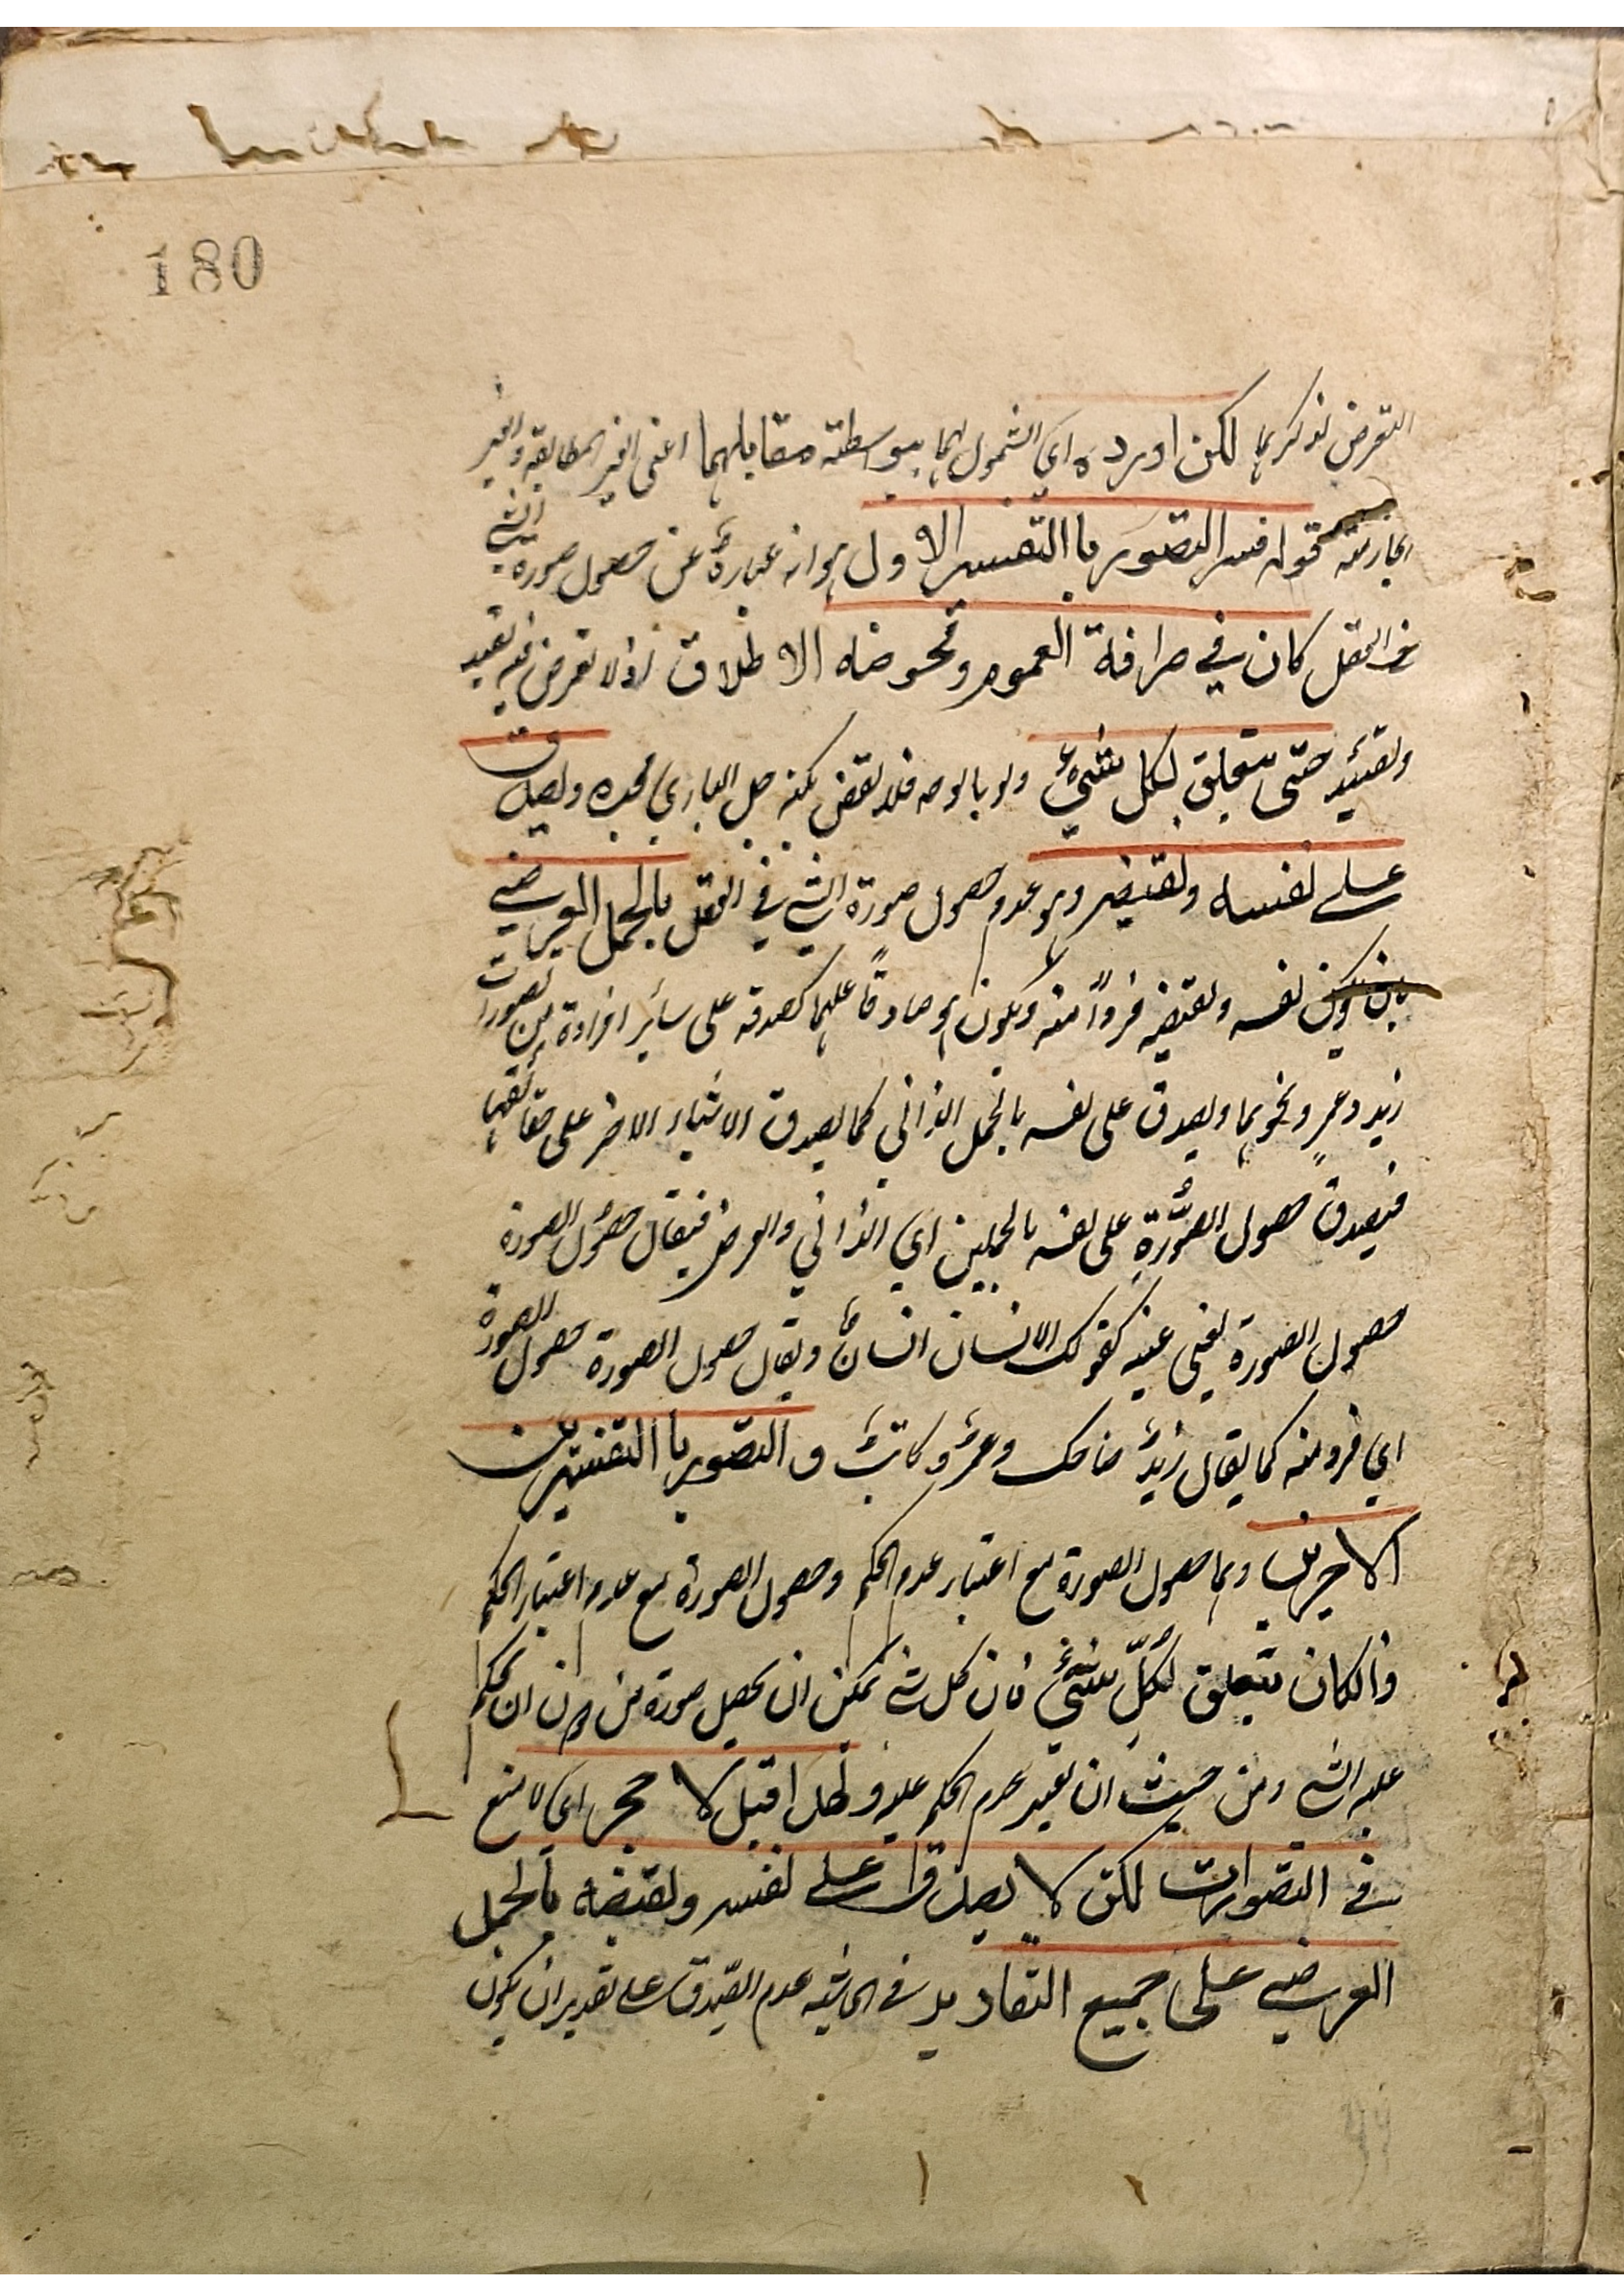 180
التعرض لذكرهما لكن اورده اي الشمول لهما بواسطة مقابلهما اعنى الغير المطابقة والغير
الجازمة قوله فسر التصور باالتفسير الاول هو انه عبارةٌ عن حصول صورة الشئ
فى العقل كان في صرافة العموم ومحوضة الاطلاق اذ لا تعرض فيه تقييد
وتقييد حتى يتعلق بكل شيءٍ ولو بالوجه فلا نقض بكنه جل الباري مجده ويصدق
على نفسه ونقيضه وهو عدم حصول صورة الشئ في العقل بالحمل العرضي
نفسه ونقيضه فرداً منه ويكون هو صادقاً عليهما كصدقه على سائر افراده من تصورات
زيد وعمرٍ ونحوهما ويصدق على نفسه بالحمل الذاتي كما يصدق الاشياء الاخر على حقائقها
فيصدق حصول الصورة على نفسه بالحملين اي الذاتي والعرضي فيقال حصول الصورة
حصول الصورة يعنى عينه كقولك الانسان انسانٌ ويقال حصول الصورة حصول الصورة
اي فرد منه كما يقال زيدٌ ضاحك وعمرٌو كاتبٌ و التصور باالتفسيرين
الاخيرين وهما حصول الصورة مع اعتبار عدم الحكم وحصول الصورة مع عدم اعتبار الحكم
وانكان يتعلق بكلّ شيءٍ فان كل شئ يمكن ان يحصل صورة من دون ان يحكم
عليه الشئ ومن حيث ان يقيد بعدم الحكم عليه ولهذا قيل لا حجر اي لا منع
في التصورات لكن لا يصدق على نفسه ونقيضه بالحمل
العرضي على جميع التقادير في الحاشية عدم الصّدق على تقدير ان يكون